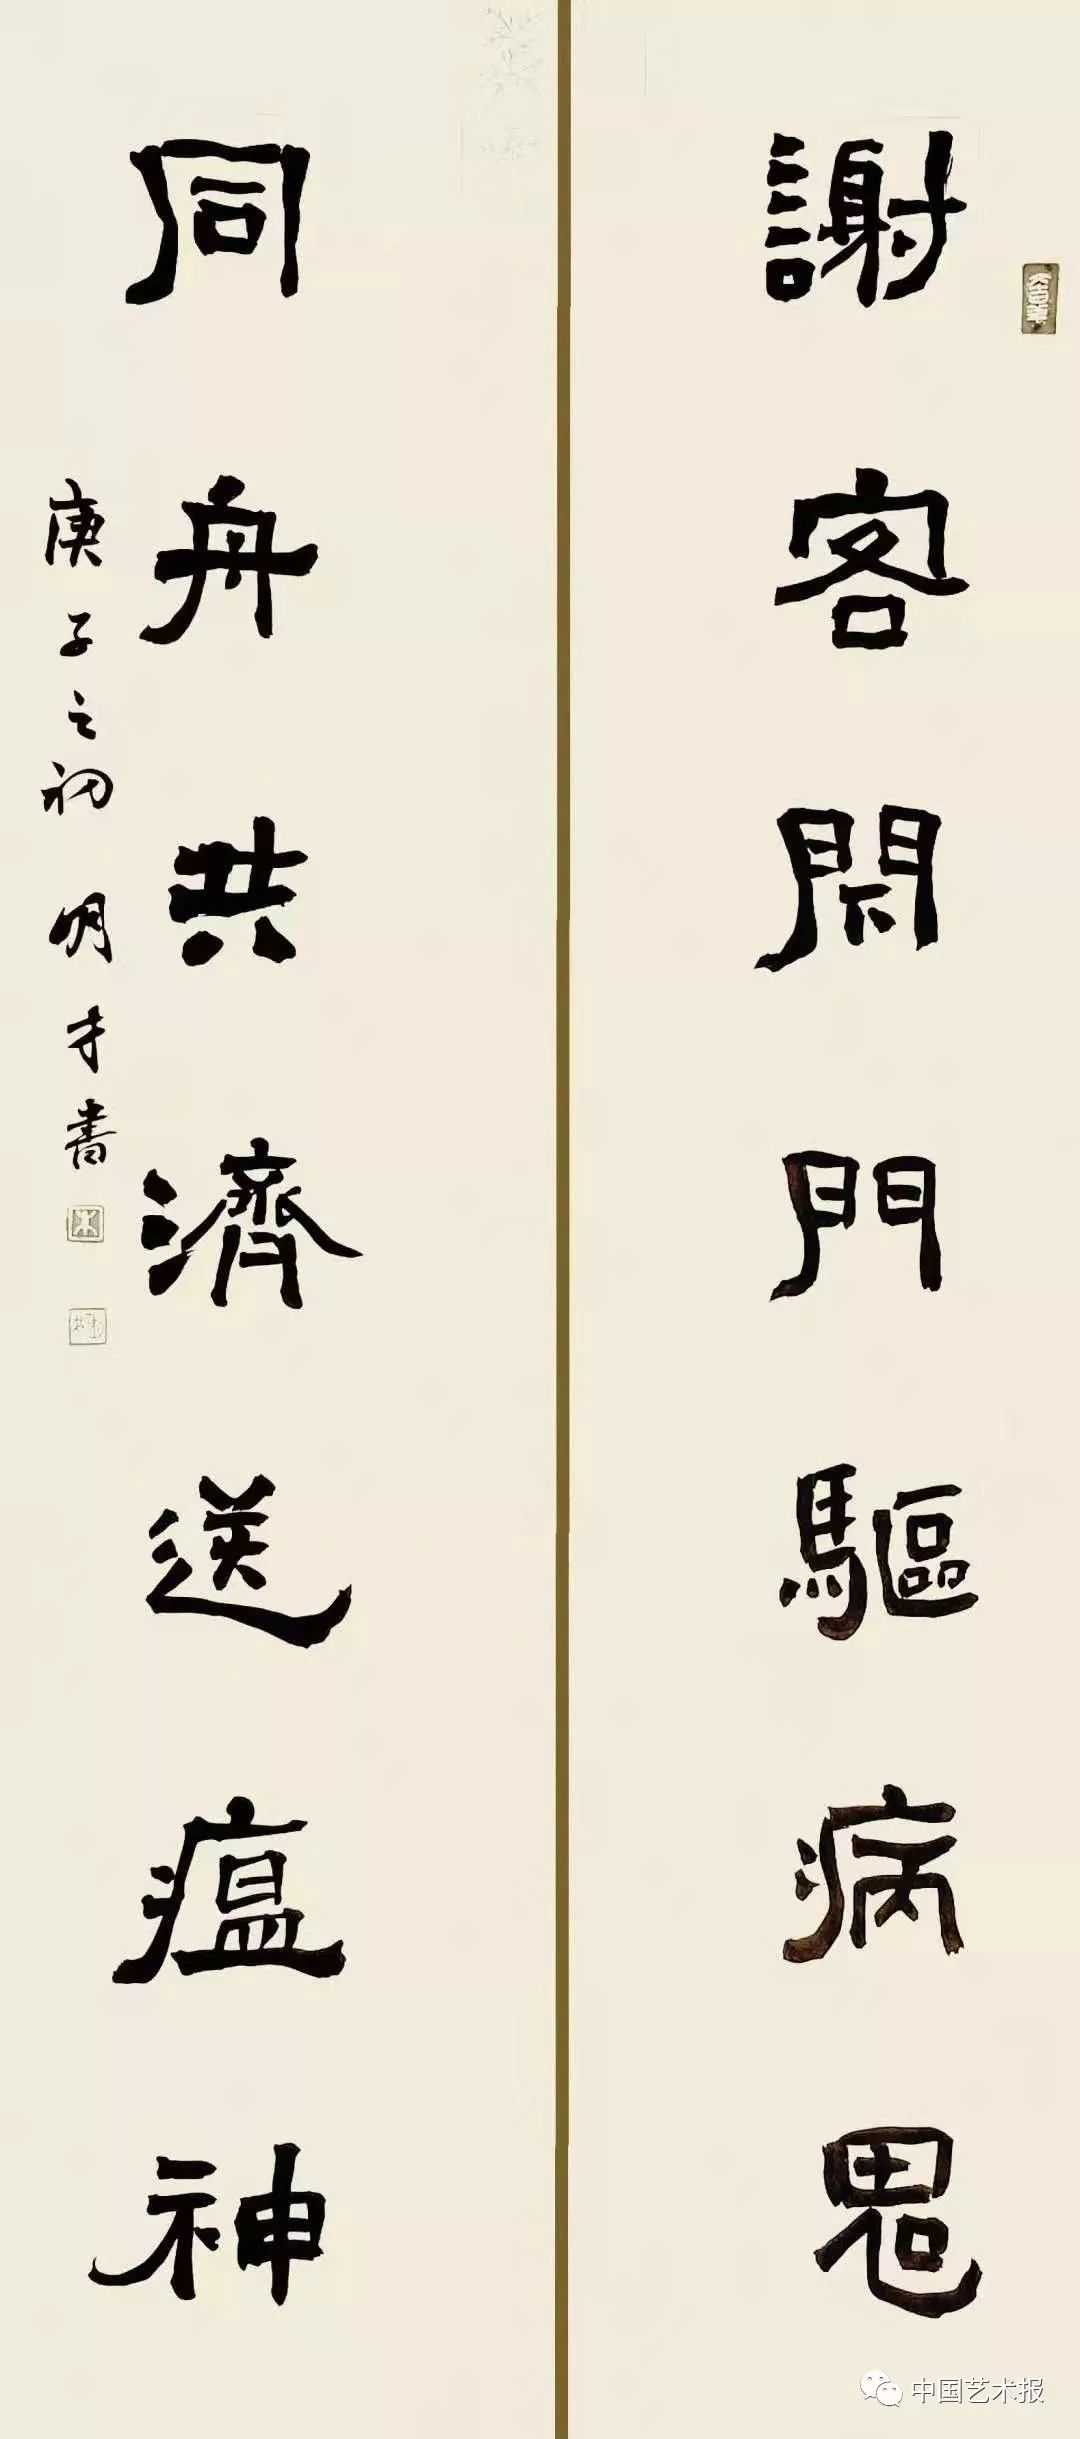 大吉羊
謝客閇門驅病鬼
同舟共濟送瘟神
庚子之初 明才書
中国艺术报